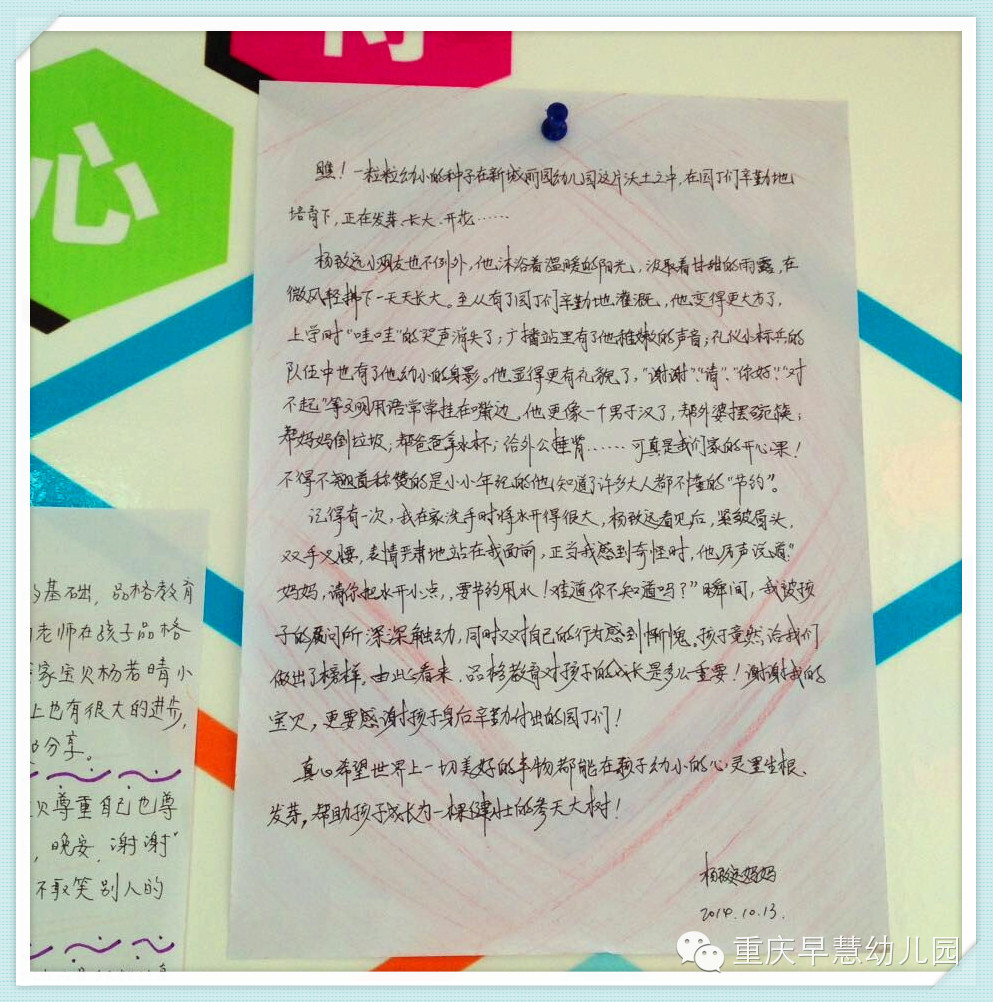 心
瞧！一粒粒幼小的种子在新城丽园幼儿园这片沃土之中，在园丁们辛勤地
培育下，正在发芽、长大、开花……
杨致远小朋友也不例外，他沐浴着温暖的阳光，汲取着甘甜的雨露，在
微风轻拂下一天天长大。至从有了园丁们辛勤地灌溉，他变得更大方了，
上学时“哇哇”的哭声消失了；广播站里有了他稚嫩的声音；礼仪小标兵的
队伍中也有了他幼小的身影。他显得更有礼貌了，“谢谢”、“请”、“你好”、“对
不起”等文明用语常常挂在嘴边，他更像一个男子汉了，帮外婆摆碗筷；
帮妈妈倒垃圾；帮爸爸拿水杯；给外公捶背……可真是我们家的开心果！
不得不翘首称赞的是小小年纪的他，知道了许多大人都不懂的“节约”。
记得有一次，我在家洗手时将水开得很大，杨致远看见后，紧皱眉头，
双手叉腰，表情严肃地站在我面前，正当我感到奇怪时，他厉声说道：“
妈妈，请你把水开小点，要节约用水！难道你不知道吗？”瞬间，我被孩
子的质问所深深触动，同时又对自己的行为感到惭愧。孩子竟然给我们
做出了榜样，由此看来，品格教育对孩子的成长是多么重要！谢谢我的
宝贝，更要感谢孩子身后辛勤付出的园丁们！
真心希望世界上一切美好的事物都能在孩子幼小的心灵里生根、
发芽，帮助孩子成长为一棵健壮的参天大树！
杨致远妈妈
2014.10.13.
基础，品格教育
老师在孩子品格
家宝贝杨若晴小
上也有很大的进步，
分享。
尊重自己也尊
，晚安，谢谢”
不取笑别人的
重庆早慧幼儿园